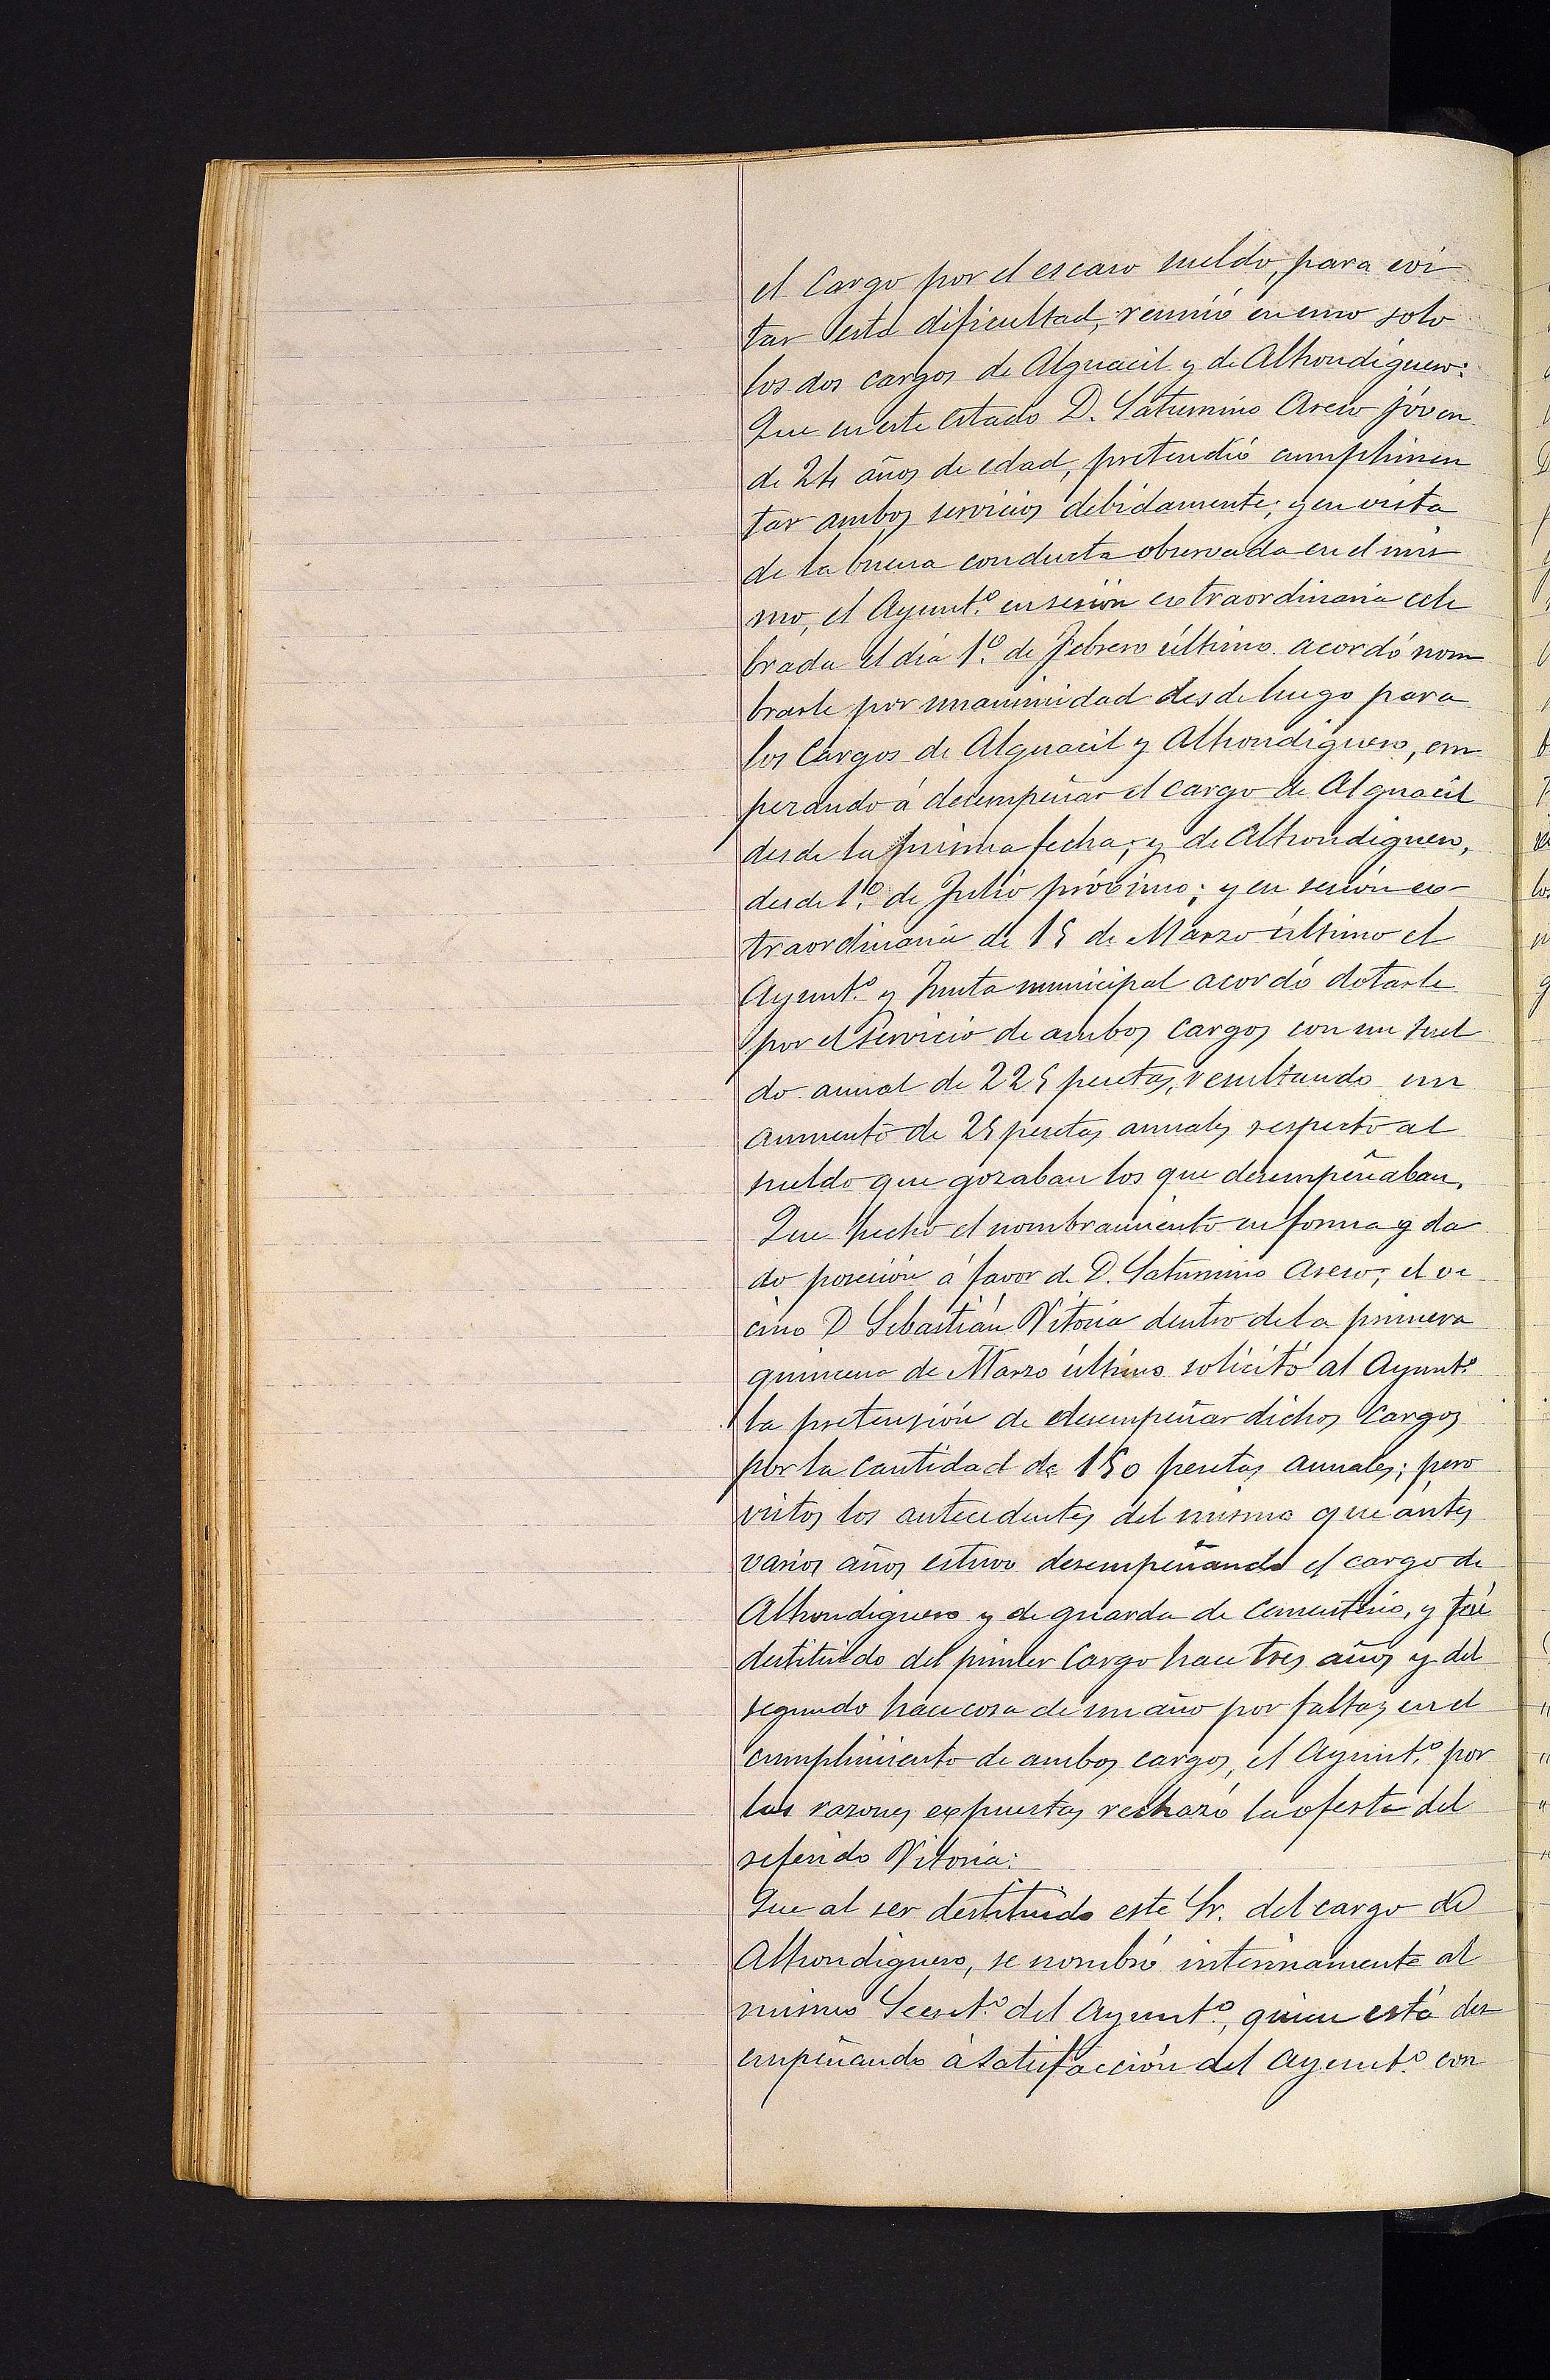 el Cargo por el escaso sueldo, para evi
tar esta dificultad, reunió en uno solo
los dos cargos de Alguacil y de Alhondiguero:
Que en este estado D. Saturnino Areso jóven
de 24 años de edad, pretendió cumplimen
tar ambos servicios debidamente; y en vista
de la buena conducta observada en el mis
mo, el Ayunt.º en sesión extraordinaria cele
brada el dia 1.º de Febrero último acordó nom
brarle por unanimidad desde luego para
los Cargos de Alguacil y Alhondiguero, em
pezando á desempeñar el cargo de Alguacil
desde la misma fecha; y de Alhondiguero,
desde 1.º de Julio próximo; y en sesión ex-
traordinaria de 15 de Marzo último el
Ayunt.º y Junta municipal acordó dotarle
por el servicio de ambos Cargos con un suel
do anual de 225 pesetas, resultando un
aumento de 25 pesetas anuales respecto al
sueldo que gozaban los que desempeñaban.
Que hecho el nombramiento en forma y da
do posesión á favor de D. Saturnino Areso; el ve
cino D Sebastián Vitoria dentro de la primera
quincena de Marzo último solicitó al Ayunt.º
la pretensión de desempeñar dichos Cargos
por la Cantidad de 150 pesetas anuales; pero
vistos los antecedentes del mismo que ántes
varios años estuvo desempeñando el cargo de
Alhondiguero y de guarda de Cementerio, y fué
destituido del primer Cargo hace tres años y del
segundo hace cosa de un año por faltas en el
cumplimiento de ambos cargos, el Ayunt.º por
las razones expuestas rechazó la oferta del
referido Vitoria:
Que al ser destituido este Sr. del cargo de
Alhondiguero, se nombró interinamente al
mismo Secret.º del Ayunt.º, quien está des
empeñando á satisfacción del Ayunt.º con